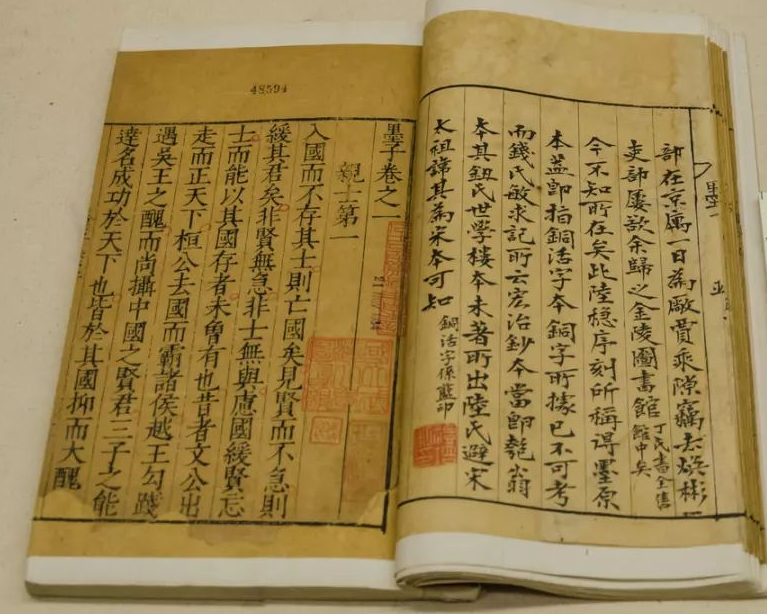 部在京寓一日為敝賈乘隙竊去焕彬
吏部屢欲余歸之金陵圖書館 丁氏書全售
館中矣
今不知所在矣此陸穏序刻所稱得墨原
本葢即指銅活字本銅字所據已不可考
而錢氏敏求記所云宏治鈔本當即匏翁
本其鈕氏世學樓本未著所出陸氏避宋
太祖諱其為宋本可知 銅活字係藍印
48594
墨子卷之一
親士第一
入國而不存其士則亡國矣見賢而不急則
緩其君矣非賢無急非士無與慮國緩賢忘
士而能以其國存者未曾有也昔者文公出
走而正天下桓公去國而霸諸侯越王勾踐
遇吳王之醜而尚攝中國之賢君三子之能
達名成功於天下也皆於其國抑而大醜